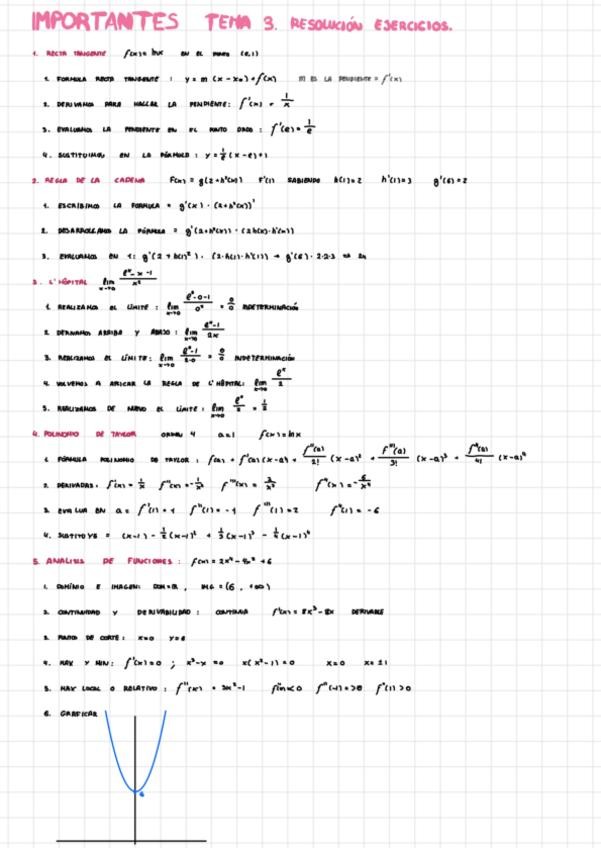 IMPORTANTES TEMA 3. RESOLUCIÓN EJERCICIOS.
1. RECTA TANGENTE f(x) = lnx EN EL PUNTO (e,1)
1. FORMULA RECTA TANGENTE : y = m (x - x₀) + f(x) m ES LA PENDIENTE = f'(x)
2. DERIVAMOS PARA HALLAR LA PENDIENTE: f'(x) = 1/x
3. EVALUAMOS LA PENDIENTE EN EL PUNTO DADO : f'(e) = 1/e
4. SUSTITUIMOS EN LA FÓRMULA : y = 1/e (x - e) + 1
2. REGLA DE LA CADENA F(x) = g(2+h²(x)) F'(1) SABIENDO h(1)=2 h'(1)=3 g'(6)=2
1. ESCRIBIMOS LA FORMULA = g'(x) · (2+h²(x))'
2. DESARROLLAMOS LA FÓRMULA = g'(2+h²(x)) · (2h(x)·h'(x))
3. EVALUAMOS EN 1: g'(2 + h(1)²) · (2·h(1)·h'(1)) → g'(6) · 2·2·3 ⇒ 24
3. L'HÔPITAL lim x→0 (eˣ - x - 1)/x²
1. REALIZAMOS EL LÍMITE : lim x→0 (e⁰-0-1)/0² = 0/0 INDETERMINACIÓN
2. DERIVAMOS ARRIBA Y ABAJO : lim x→0 (eˣ-1)/2x
3. REALIZAMOS EL LÍMITE: lim x→0 (e⁰-1)/2·0 = 0/0 INDETERMINACIÓN
4. VOLVEMOS A APLICAR LA REGLA DE L'HÔPITAL: lim x→0 eˣ/2
5. REALIZAMOS DE NUEVO EL LÍMITE : lim x→0 e⁰/2 = 1/2
4. POLINOMIO DE TAYLOR ORDEN 4 a=1 f(x) = lnx
1. FÓRMULA POLINOMIO DE TAYLOR : f(a) + f'(a)(x-a) + f''(a)/2! (x-a)² + f'''(a)/3! (x-a)³ + f⁴(a)/4! (x-a)⁴
2. DERIVADAS: f'(x) = 1/x f''(x) = -1/x² f'''(x) = 2/x³ f⁴(x) = -6/x⁴
3. EVALUA EN a = f'(1) = 1 f''(1) = -1 f'''(1) = 2 f⁴(1) = -6
4. SUSTITUYE = (x-1) - 1/2 (x-1)² + 1/3 (x-1)³ - 1/4 (x-1)⁴
5. ANALISIS DE FUNCIONES : f(x) = 2x⁴ - 4x² + 6
1. DOMÍNIO E IMAGEN: DOM = R, IMG = (6, +∞)
2. CONTINUIDAD Y DERIVABILIDAD : CONTINUA f'(x) = 8x³ - 8x DERIVABLE
3. PUNTOS DE CORTE : x=0 y=6
4. MAX Y MIN: f'(x) = 0 ; x³-x = 0 x(x²-1) = 0 x=0 x=±1
5. MAX LOCAL O RELATIVO : f''(x) = 3x²-1 f''(-1) = >0 f''(1) >0
6. GRAFICAR
6